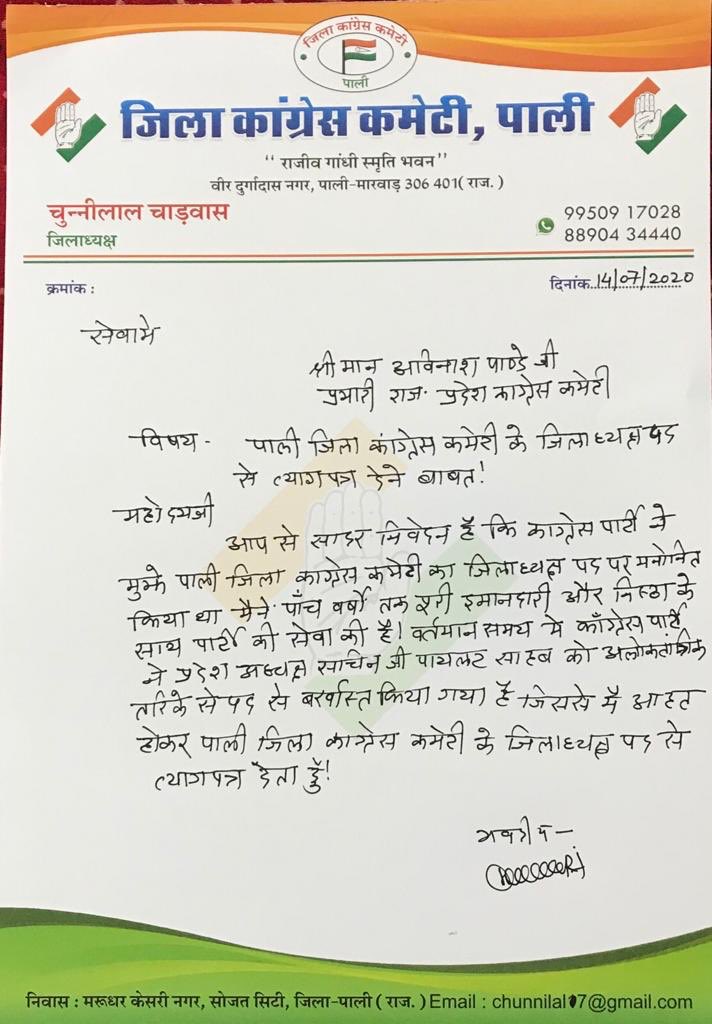 जिला कांग्रेस कमेटी
पाली
जिला कांग्रेस कमेटी, पाली
‘‘ राजीव गांधी स्मृति भवन’’
वीर दुर्गादास नगर, पाली-मारवाड़ 306 401( राज. )
चुन्नीलाल चाड़वास
जिलाध्यक्ष
99509 17028
88904 34440
क्रमांक :
दिनांक 14/07/2020
सेवामे
श्रीमान अविनाश पाण्डे जी
प्रभारी राज. प्रदेश काग्रेस कमेटी
विषय - पाली जिला काग्रेस कमेटी के जिलाध्यक्ष पद
से त्यागपत्र देने बाबत!
महोदयजी
आप से सादर निवेदन है कि काग्रेस पार्टी ने
मुझे पाली जिला काग्रेस कमेटी का जिलाध्यक्ष पद पर मनोनित
किया था मैने पाँच वर्षो तक पूरी इमानदारी और निष्ठा के
साथ पार्टी की सेवा की है! वर्तमान समय मे काँग्रेस पार्टी
ने प्रदेश अध्यक्ष सचिन जी पायलट साहब को अलोकतांत्रिक
तरिके से पद से बर्खास्त किया गया है जिससे मै आहत
होकर पाली जिला काग्रेस कमेटी के जिलाध्यक्ष पद से
त्यागपत्र देता हुँ!
भवदीय —
निवास : मरूधर केसरी नगर, सोजत सिटी, जिला-पाली ( राज. ) Email : chunnilal17@gmail.com